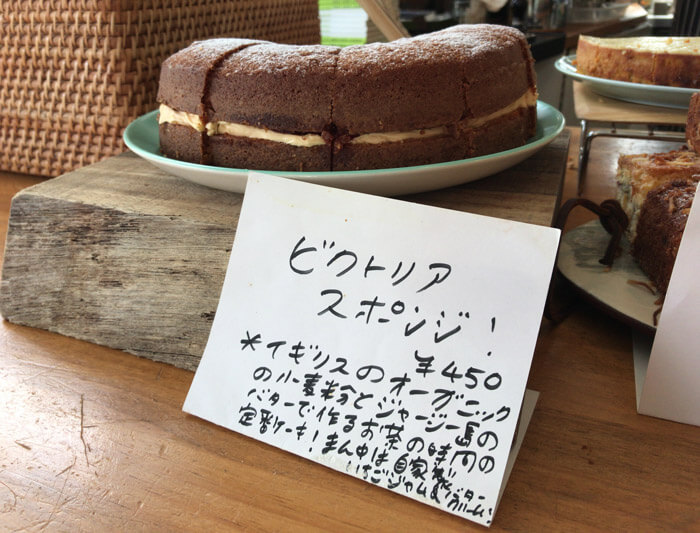 ビクトリア
スポンジ!
¥450
*イギリスのオーガニック
の小麦粉とジャージー島の
バターで作るお茶の時間の
定番ケーキ!まん中は自家製バター
いちごジャム&クリーム!